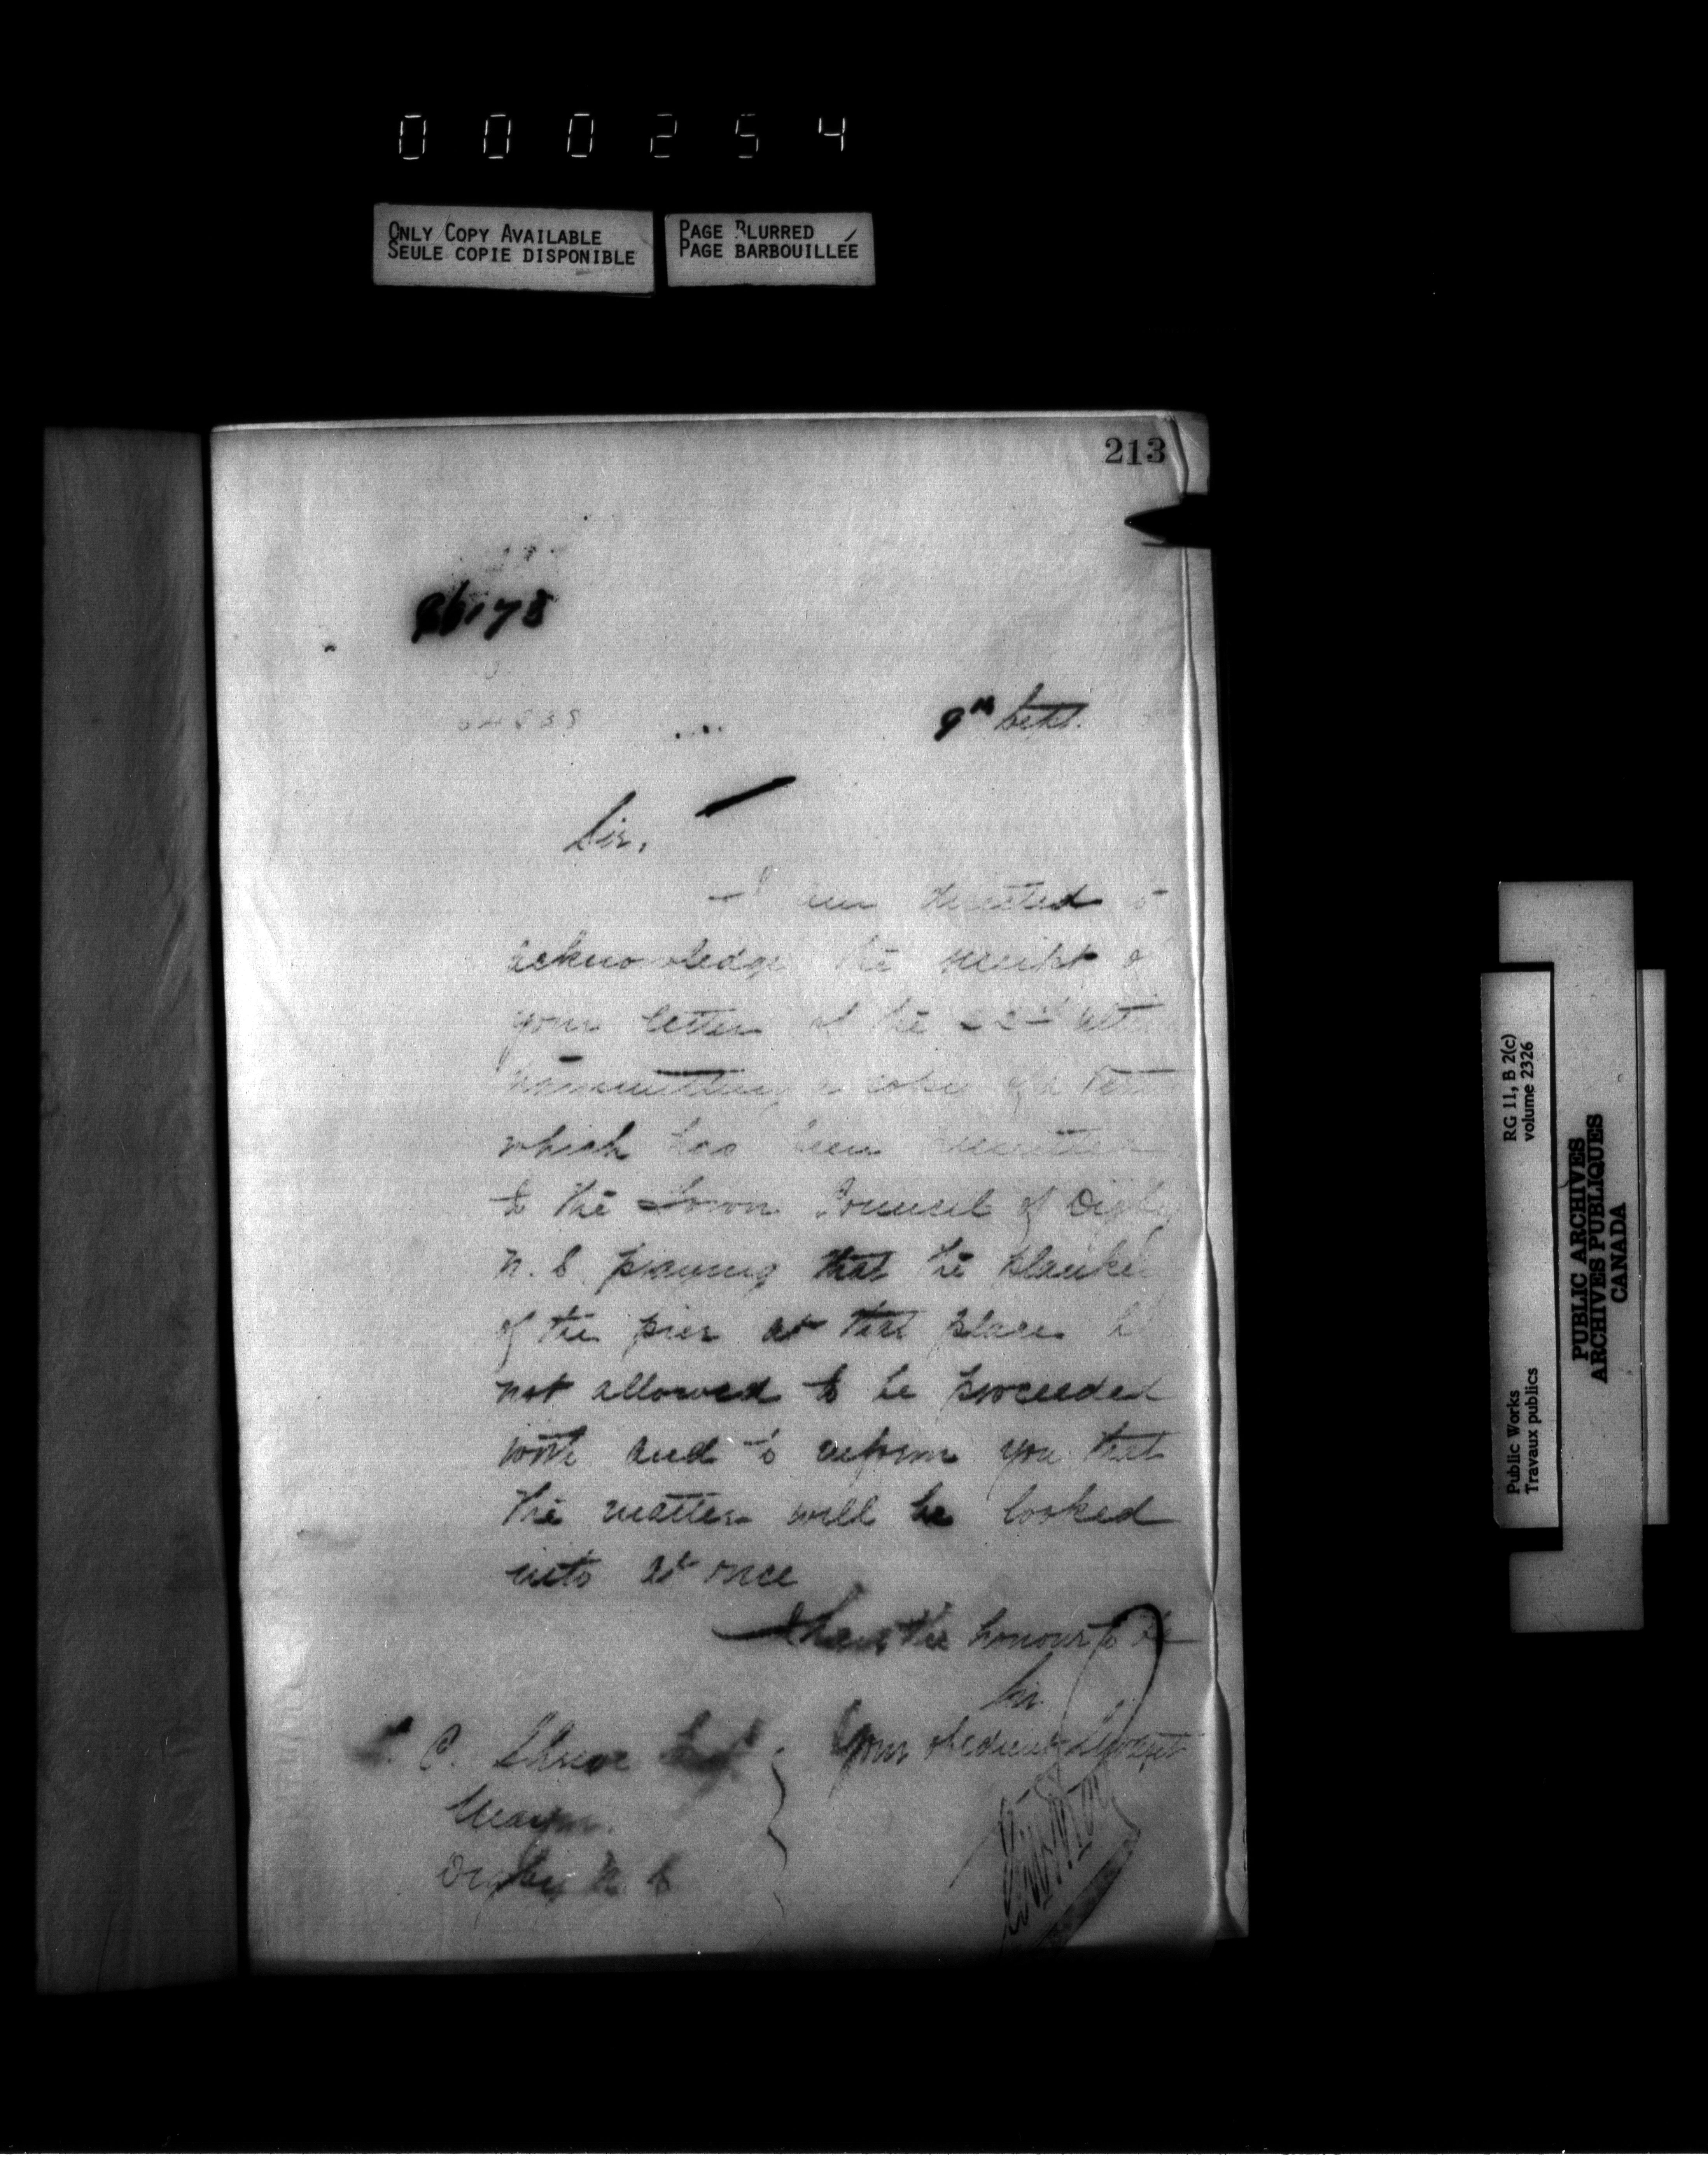 000254
ONLY COPY AVAILABLE
SEULE COPIE DISPONIBLE
PAGE BLURRED
PAGE BARBOUILLÉE
213
9th Sept.
Sir,
I am directed to
acknowledge the receipt of
your letter of the 22nd ult
transmitting a copy of a
which has been
to the Town Council of Digby
N.S. praying that the
of the pier at that place be
not allowed to be proceeded
with and to inform you that
the matter will be looked
into at once
I have the honour to be
Sir
Your obedient Servant
C.
Mayor.
Digby N.S
Public Works
Travaux publics
RG 11, B 2(c)
volume 2326
PUBLIC ARCHIVES
ARCHIVES PUBLIQUES
CANADA